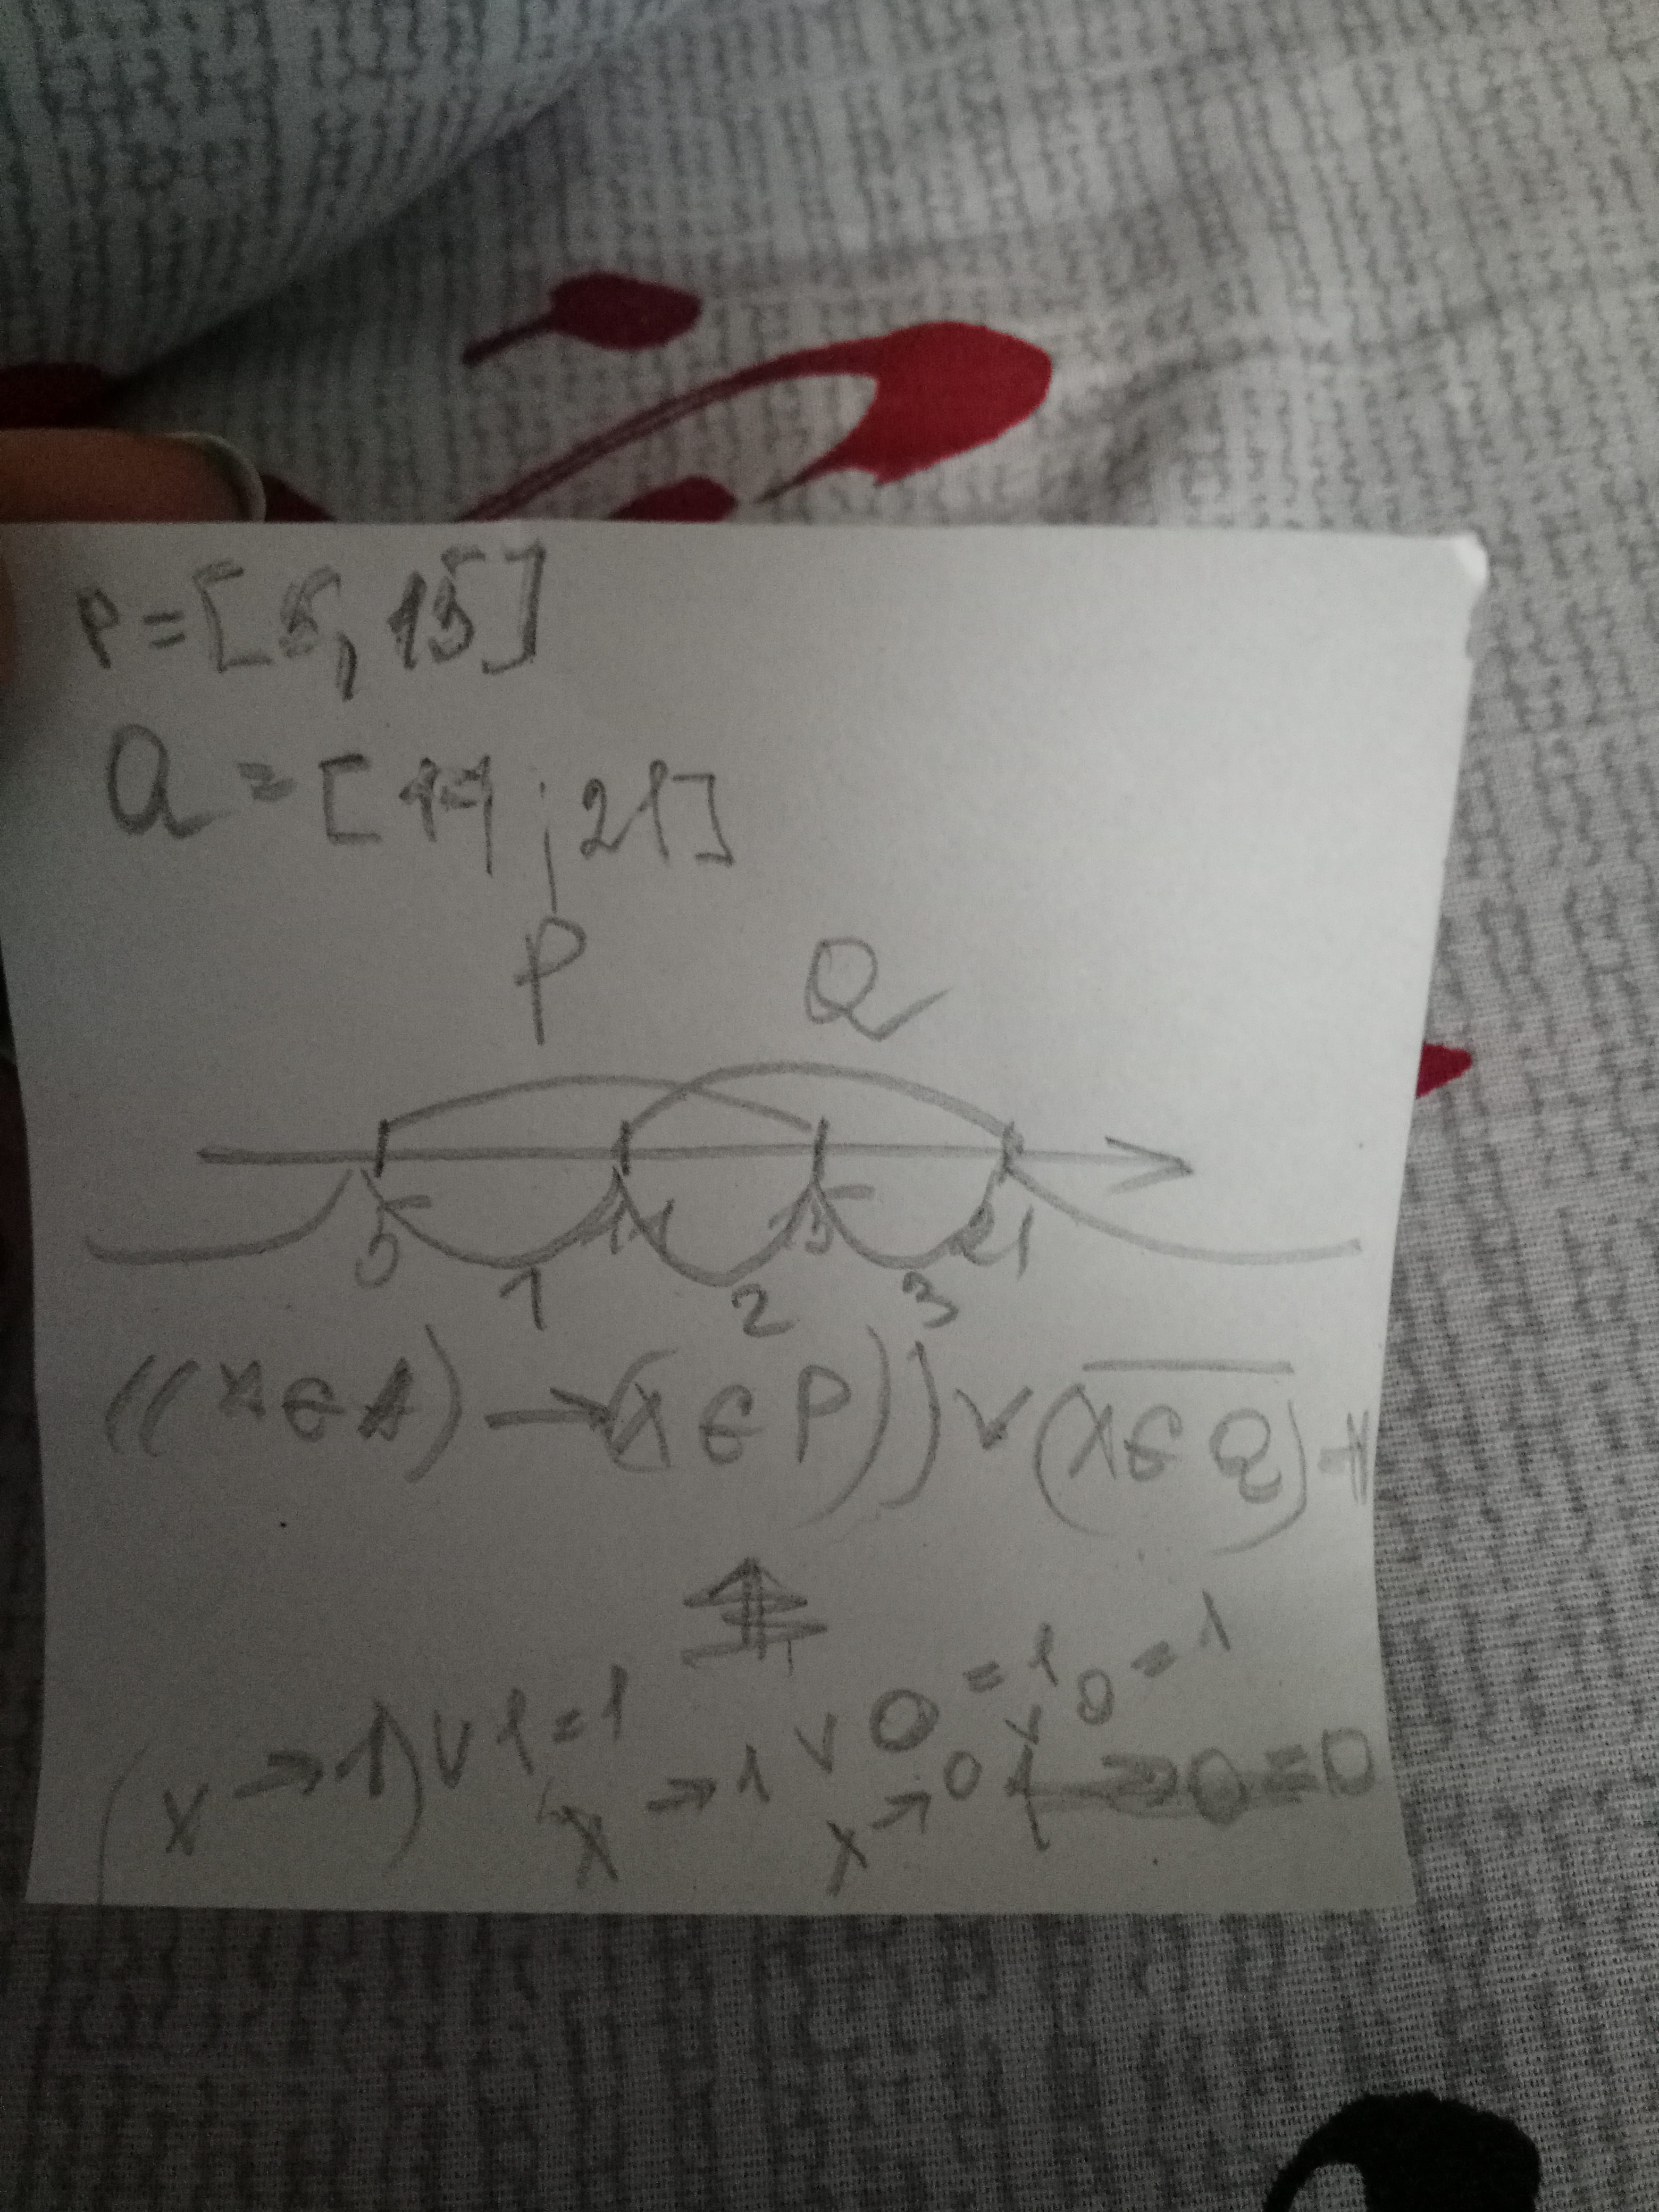 P=[5,15]
Q=[11;21]
P Q
5 11 15 21
1 2 3
((x∈A)→(x∈P))∨(x̅∈̅Q̅)=1
(x→1)∨1=1 x→1∨0=1 x→0∨0=1